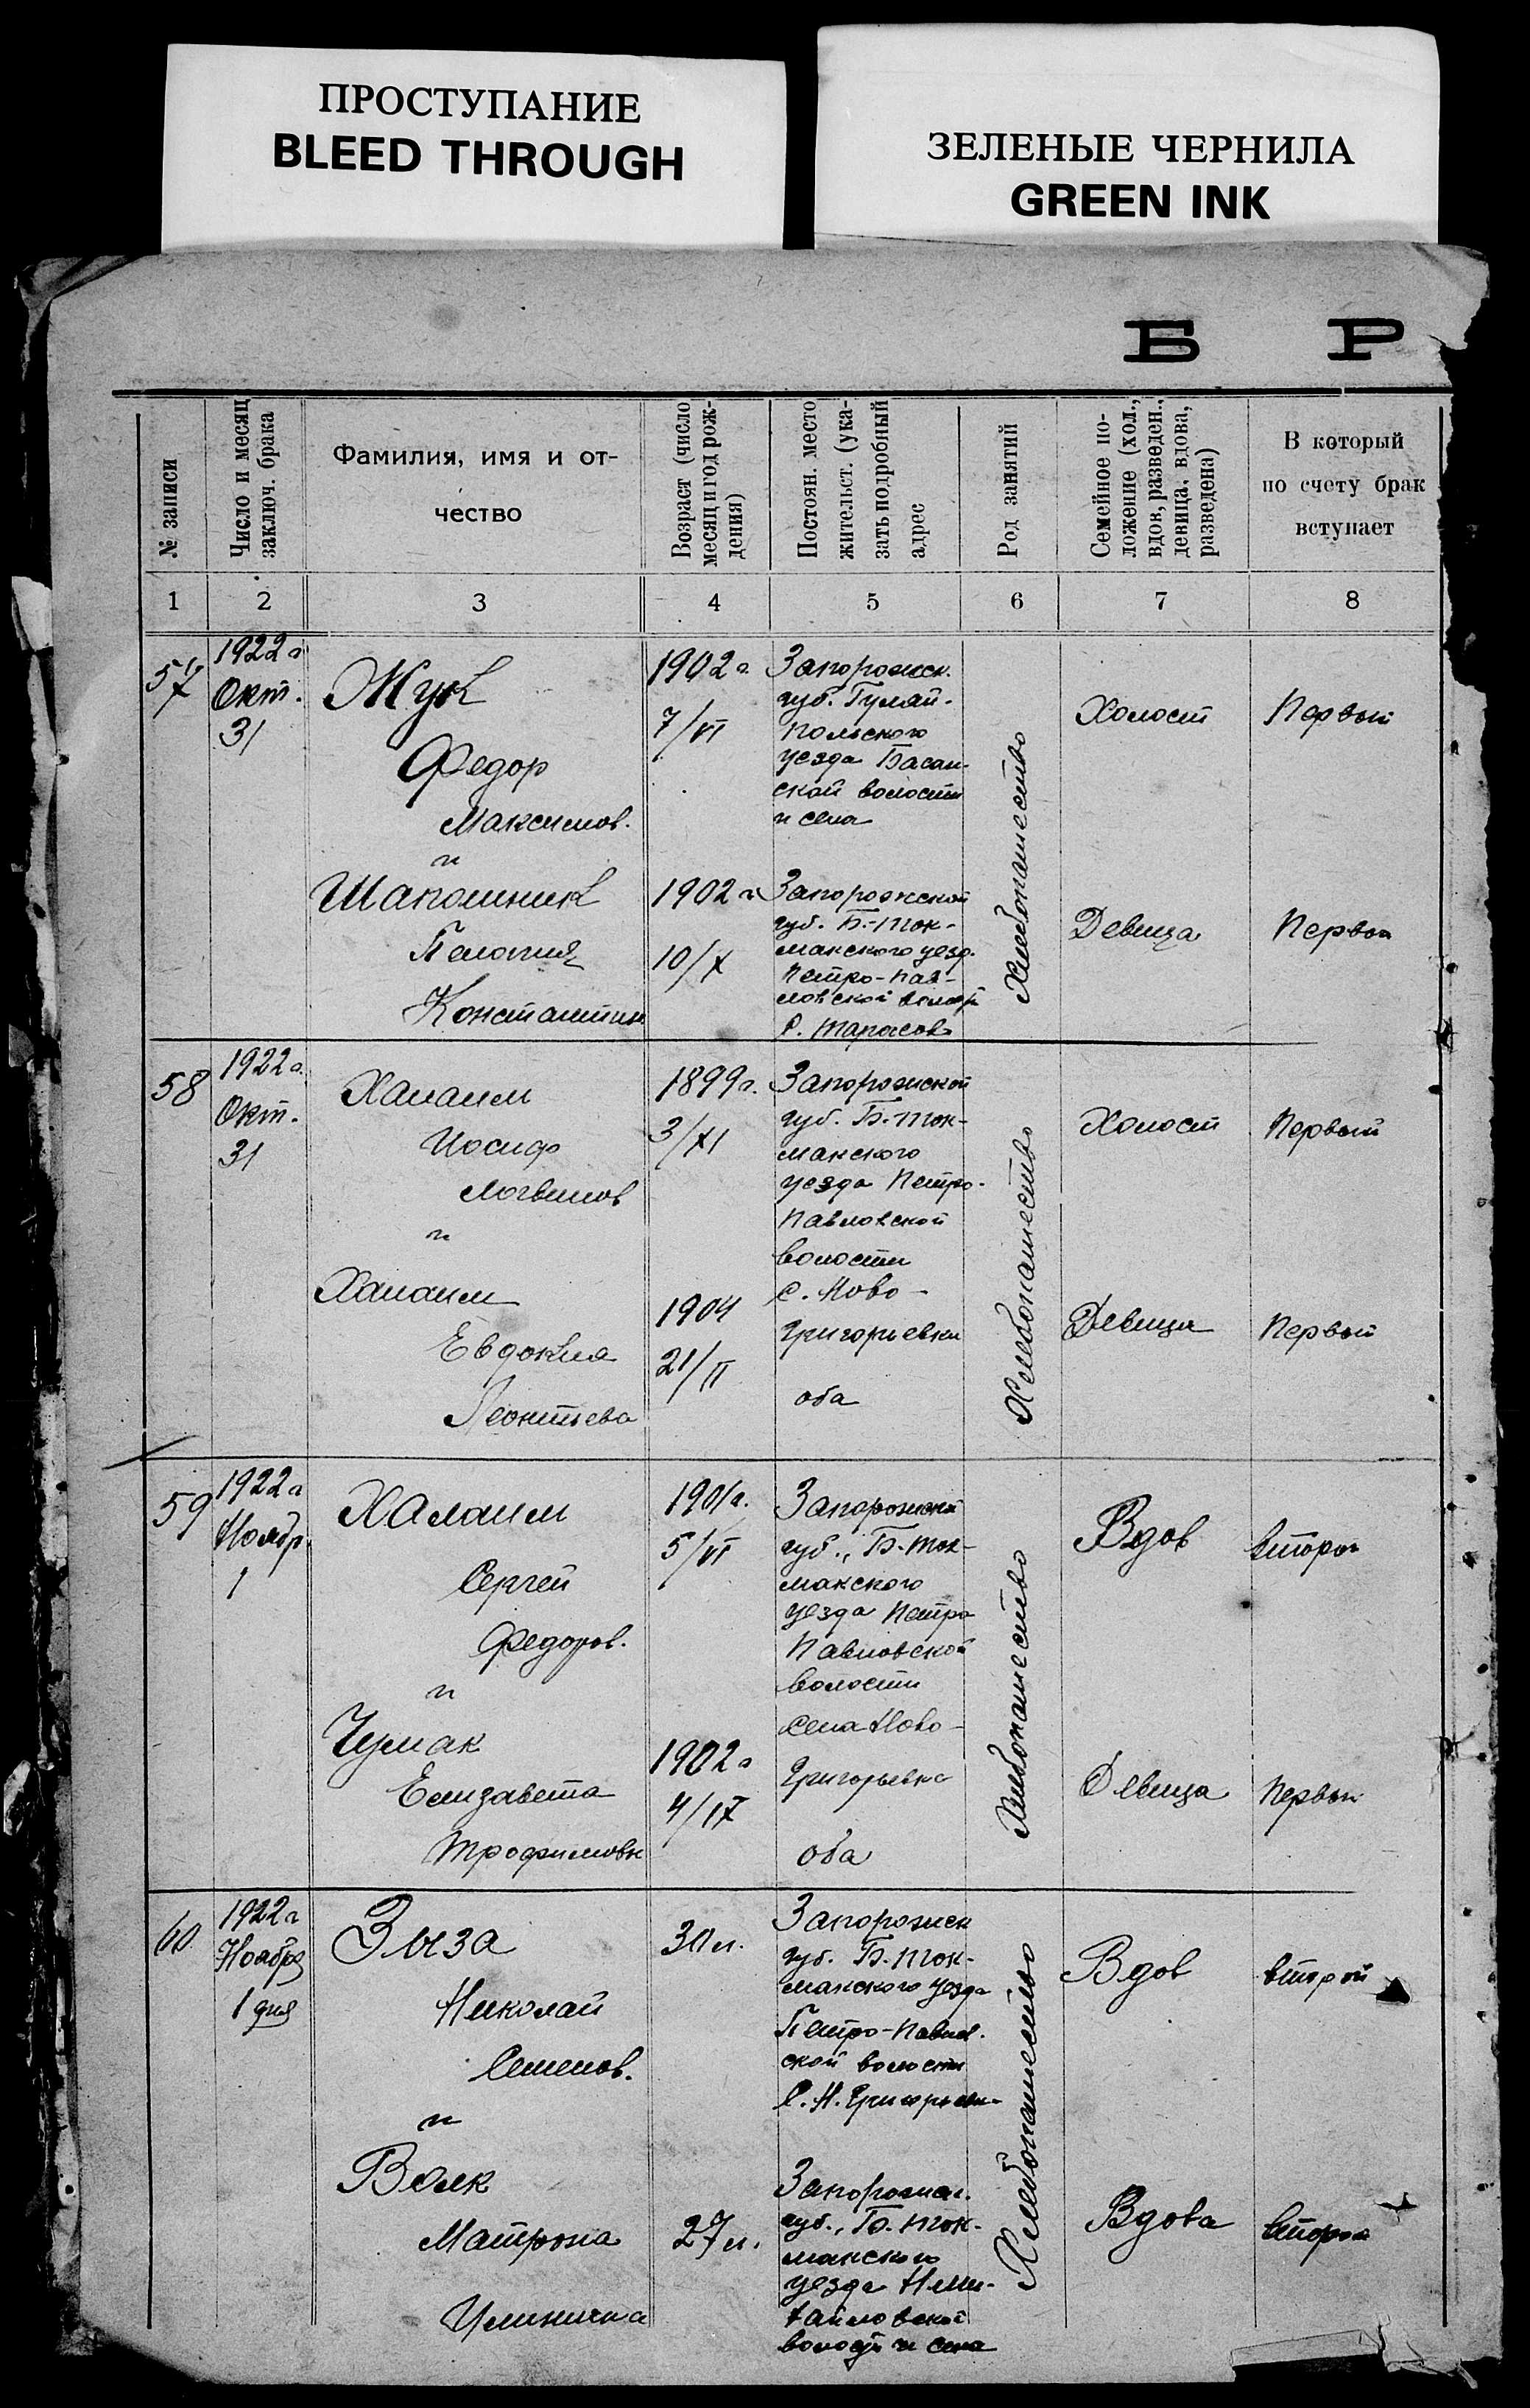 ПРОСТУПАНИЕ
BLEED THROUGH
ЗЕЛЕНЫЕ ЧЕРНИЛА
GREEN INK
Б Р
№ записи
Число и месяц
заключ. брака
Фамилия, имя и от-
чество
Возраст (число
месяц и год рож-
дения)
Постоян. место
жительст. (ука-
зать подробный
адрес
Род занятий
Семейное по-
ложение (хол.,
вдов, разведен.,
девица, вдова,
разведена)
В который
по счету брак
вступает
1 2 3 4 5 6 7 8
57
1922 г
Окт.
31
Жук
Федор
Максимов.
и
Шаполник
Пелагия
Константин
1902 г.
7/VI
1902 г
10/X
Запорожск.
губ. Гуляй-
польского
уезда Басан-
ской волости
и села
Запорожской
губ. Б.-Ток-
макского уезд.
Петро-Пав-
ловской волост
с. Тарасов
Хлебопашество
Холост
Девица
Первый
Первы
58
1922 г.
Окт.
31
Халаим
Иосиф
Логвинов
и
Халаим
Евдокия
Леонтьева
1899 г.
3/XI
1904
21/II
Запорожской
губ. Б. Ток-
макского
уезда Петро-
Павловской
волости
с. Ново-
Григорьевки
оба
Хлебопашество
Холост
Девица
Первый
Первый
59
1922 г
Ноябр.
1
Халаим
Сергей
Федоров.
и
Чумак
Елизавета
Трофимовн
1901 г.
5/VI
1902 г
4/IV
Запорожской
губ., Б. Ток-
макского
уезда Петро
Павловской
волости
села Ново-
Григорьевка
оба
Хлебопашество
Вдов
Девица
второй
Первый
60
1922 г
Ноября
1 дня
Зыза
Николай
Семенов.
и
Волк
Матрона
30 л.
27 л.
Запорожск
губ. Б. Ток-
макского уезда
Петро-Павлов.
ской волости
с. Н. Григорьевк
Запорожск.
губ., Б. Ток-
макского
уезда
волост и села
Хлебопашество
Вдов
Вдова
второй
второй